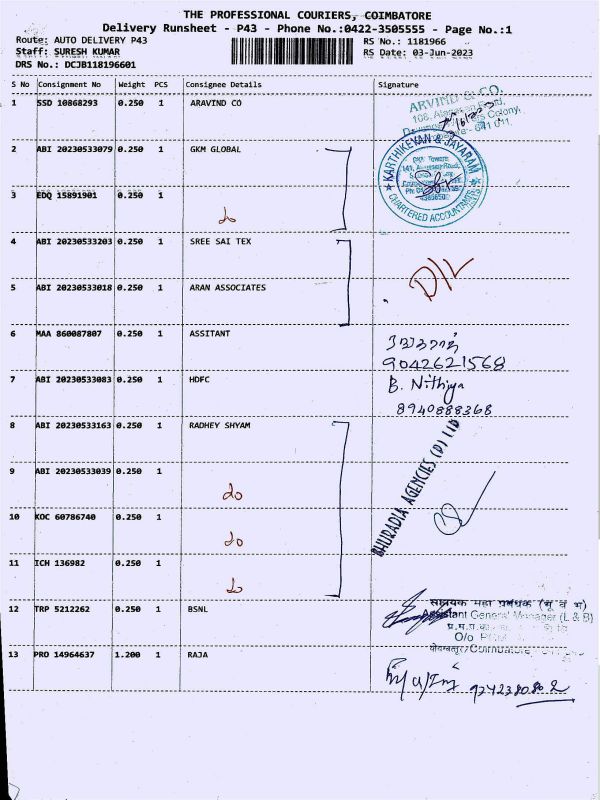 THE PROFESSIONAL COURIERS, COIMBATORE
Delivery Runsheet - P43 - Phone No.:0422-3505555 - Page No.:1
Route: AUTO DELIVERY P43 RS No.: 1181966
Staff: SURESH KUMAR RS Date: 03-Jun-2023
DRS No.: DCJB118196601
S No Consignment No Weight PCS Consignee Details Signature
1 SSD 10868293 0.250 1 ARAVIND CO
ARVIND & CO.
108,
Colony,
641 011.
2 ABI 20230533079 0.250 1 GKM GLOBAL
KARTHIKEYAN & JAYARAM
CHARTERED ACCOUNTANTS
3 EDQ 15891901 0.250 1 do
4 ABI 20230533203 0.250 1 SREE SAI TEX
D/L
5 ABI 20230533018 0.250 1 ARAN ASSOCIATES
6 MAA 860087807 0.250 1 ASSITANT
9042621568
7 ABI 20230533083 0.250 1 HDFC B. Nithiya
8940888368
8 ABI 20230533163 0.250 1 RADHEY SHYAM
BHURADIA AGENCIES (P) LTD
9 ABI 20230533039 0.250 1 do
10 KOC 60786740 0.250 1 do
11 ICH 136982 0.250 1 do
12 TRP 5212262 0.250 1 BSNL
सहायक महा प्रबंधक (भू व भ)
Assistant General Manager (L & B)
O/o
Coimbatore
13 PRO 14964637 1.200 1 RAJA